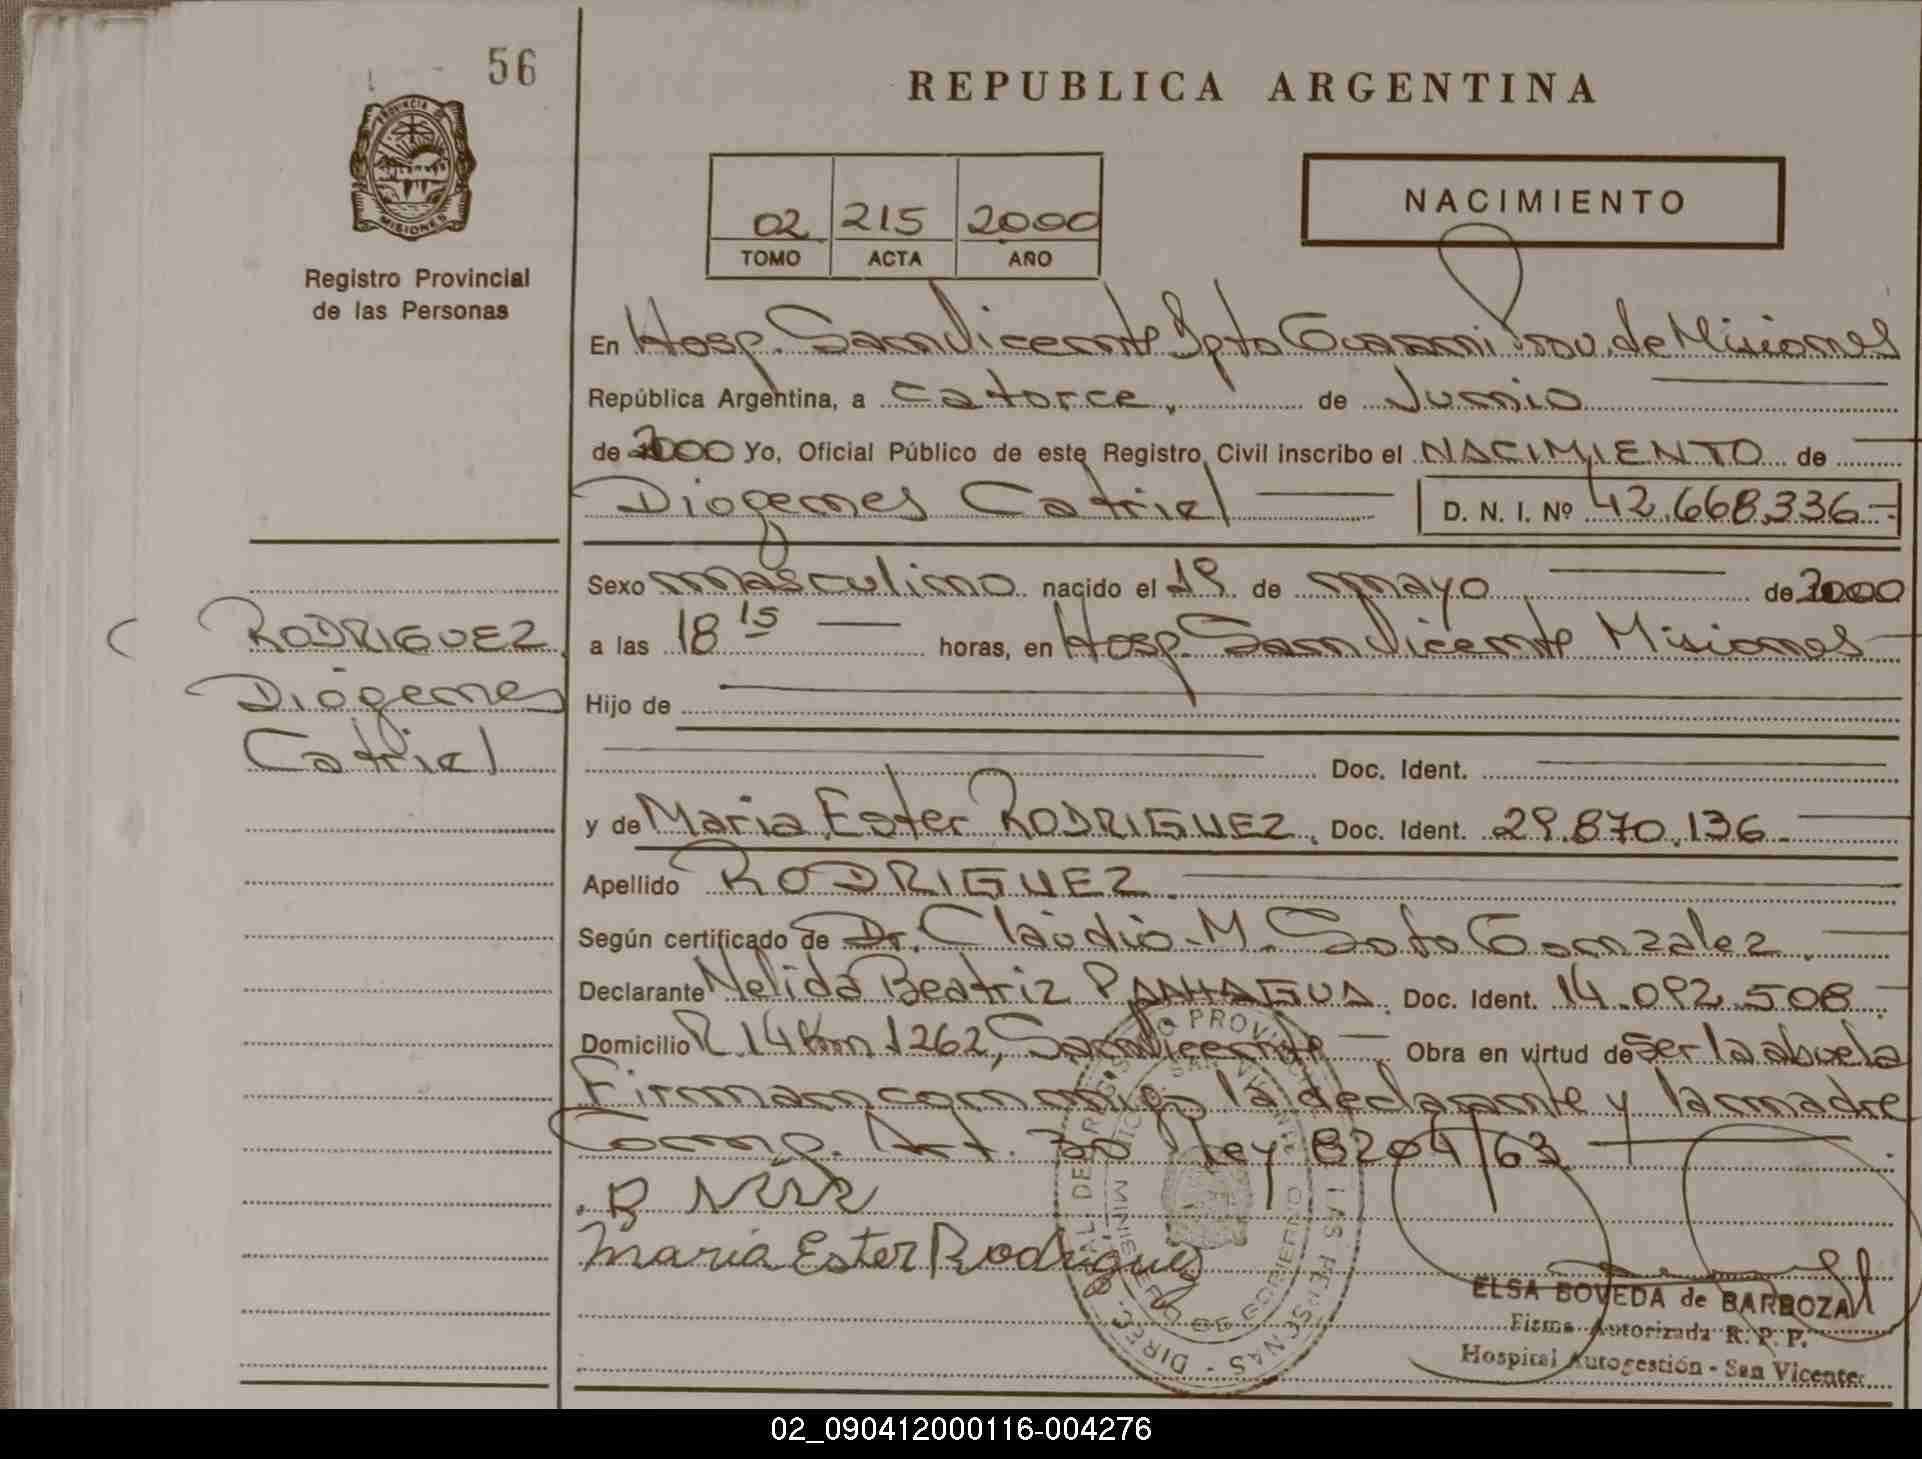 56
REPUBLICA ARGENTINA
PROVINCIA DE
MISIONES
Registro Provincial
de las Personas
02 215 2000
TOMO ACTA AÑO
NACIMIENTO
En Hosp. San Vicente Dpto Guarani Prov. de Misiones
República Argentina, a catorce, de Junio
de 2000 Yo, Oficial Público de este Registro Civil inscribo el NACIMIENTO de
Diogenes Catriel D. N. I. Nº 42.668.336.-
Sexo masculino nacido el 19 de mayo de 2000
a las 18 15 horas, en Hosp. San Vicente Misiones
Hijo de
Doc. Ident.
y de Maria Ester RODRIGUEZ. Doc. Ident. 29.870.136
Apellido RODRIGUEZ.
Según certificado de Dr. Claudio M. Soto Gonzalez.
Declarante Nelida Beatriz Doc. Ident. 14.092.508
Domicilio R. 14 Km 1262, San Vicente Obra en virtud de ser la abuela
Firman conmigo la declarante y la madre
Comp. Art. 30 Ley 8204/63
Maria Ester Rodriguez
RODRIGUEZ
Diógenes
Catriel
ELSA BOVEDA de BARBOZA
Firma Autorizada R. P. P.
Hospital Autogestión - San Vicente
02_090412000116-004276